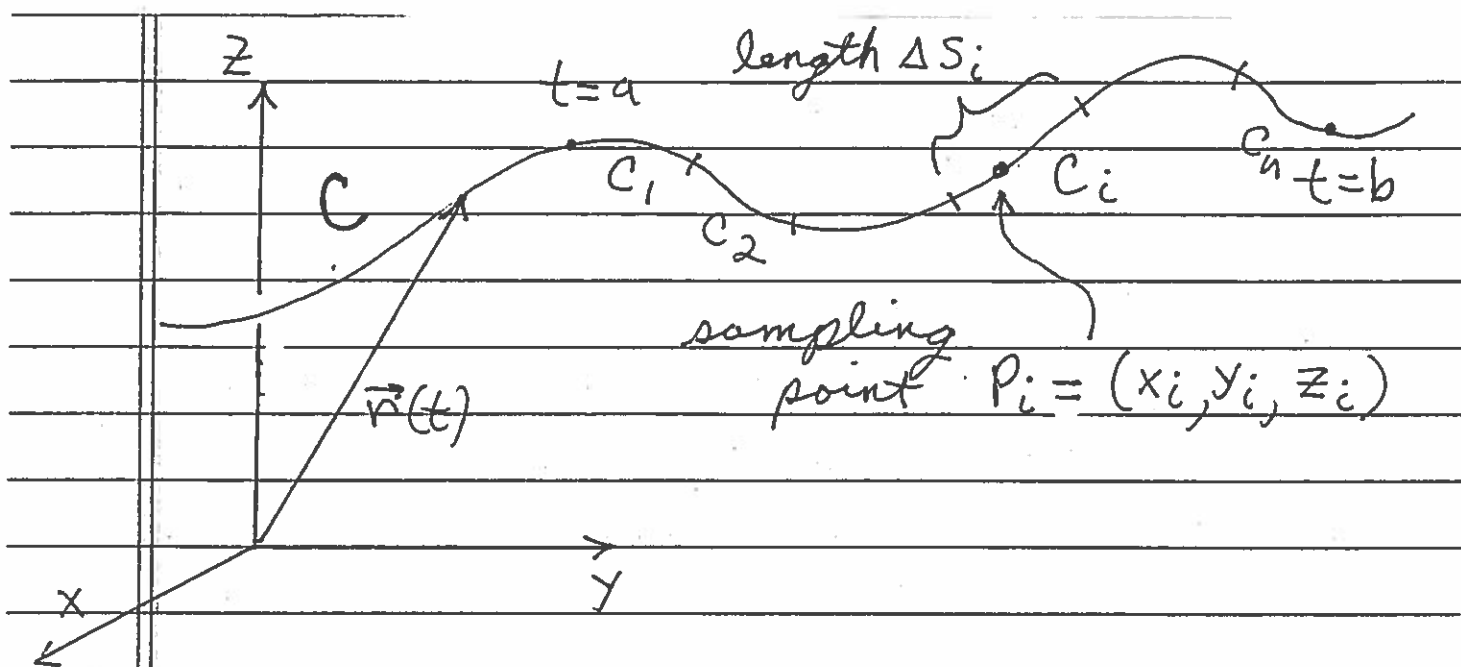 Z
t=a
length ΔSᵢ
C
C₁
C₂
Cᵢ
Cₙ
t=b
sampling
point Pᵢ = (xᵢ, yᵢ, zᵢ)
r⃗(t)
y
x